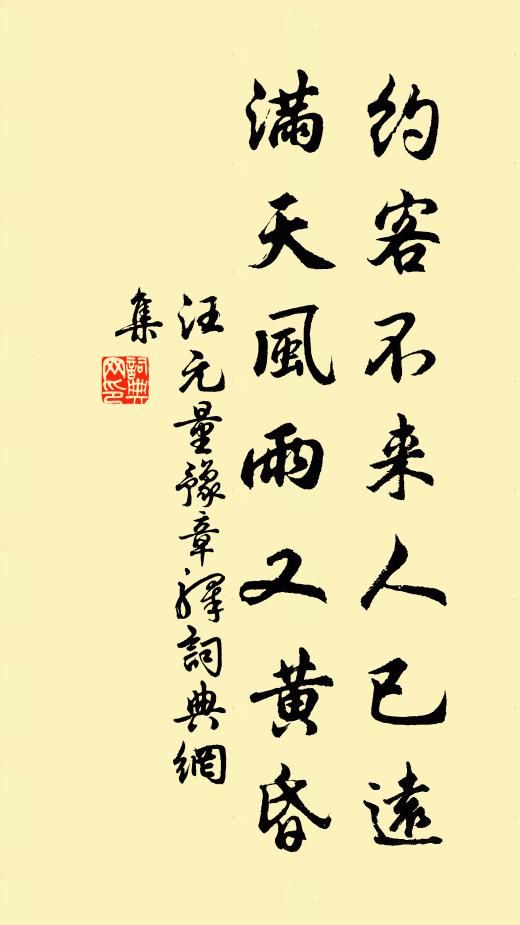 约客不来人已遠
满天風雨又黄昏
汪元量豫章驛詞典網
集
詞典网印